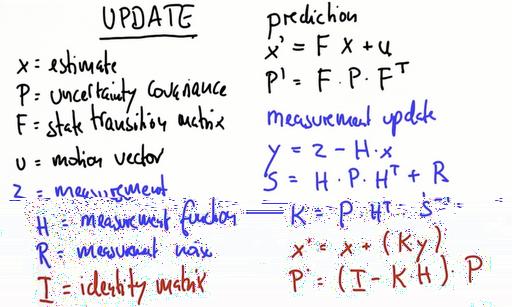 UPDATE
x = estimate
P = uncertainty covariance
F = state transition matrix
u = motion vector
z = measurement
H = measurement function
R = measurement noise
I = identity matrix
prediction
x' = F x + u
P' = F · P · Fᵀ
measurement update
y = z - H · x
S = H · P · Hᵀ + R
K = P · Hᵀ · S⁻¹
x' = x + (K y)
P' = (I - K H) · P